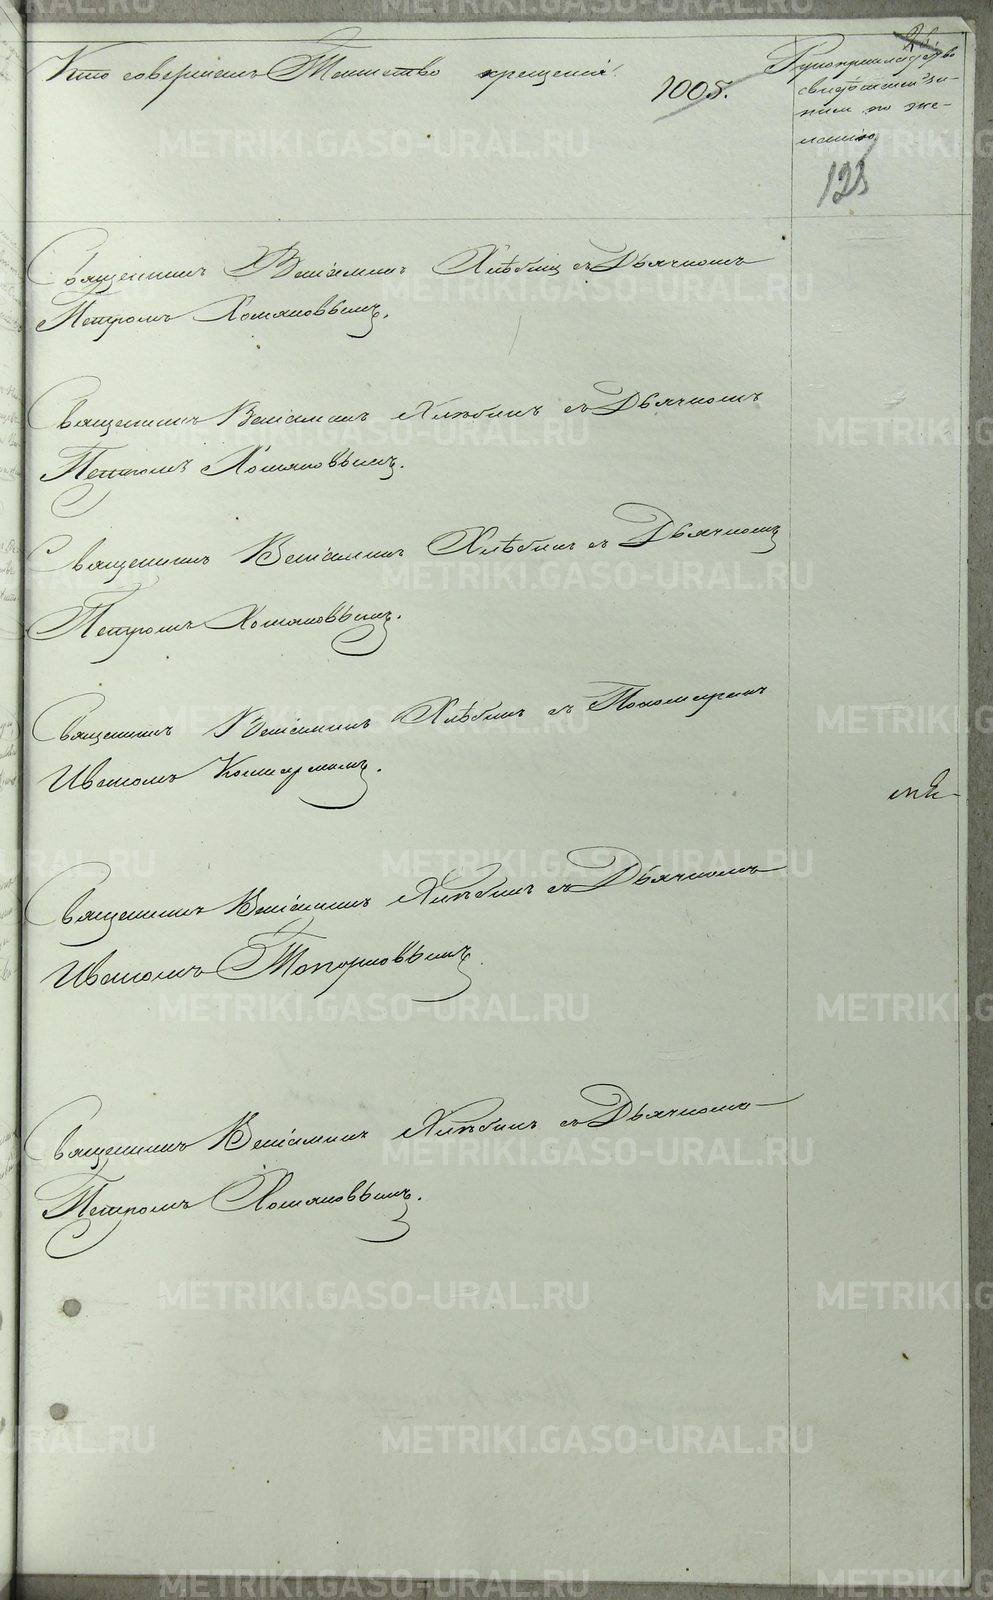 Кто совершалъ Таинство крещенія.
1005.
Рукоприкладство
свидѣтелей за-
писи по же-
ланію.
123
Священникъ Веніаминъ Хлѣбинъ съ Дьячкомъ
Петромъ Хомяковымъ.
Священникъ Веніаминъ Хлѣбинъ съ Дьячкомъ
Петромъ Хомяковымъ.
Священникъ Веніаминъ Хлѣбинъ съ Дьячкомъ
Петромъ Хомяковымъ.
Священникъ Веніаминъ Хлѣбинъ съ Пономаремъ
Иваномъ
Священникъ Веніаминъ Хлѣбинъ съ Дьячкомъ
Иваномъ Топорковымъ.
Священникъ Веніаминъ Хлѣбинъ съ Дьячкомъ
Петромъ Хомяковымъ.
METRIKI.GASO-URAL.RU